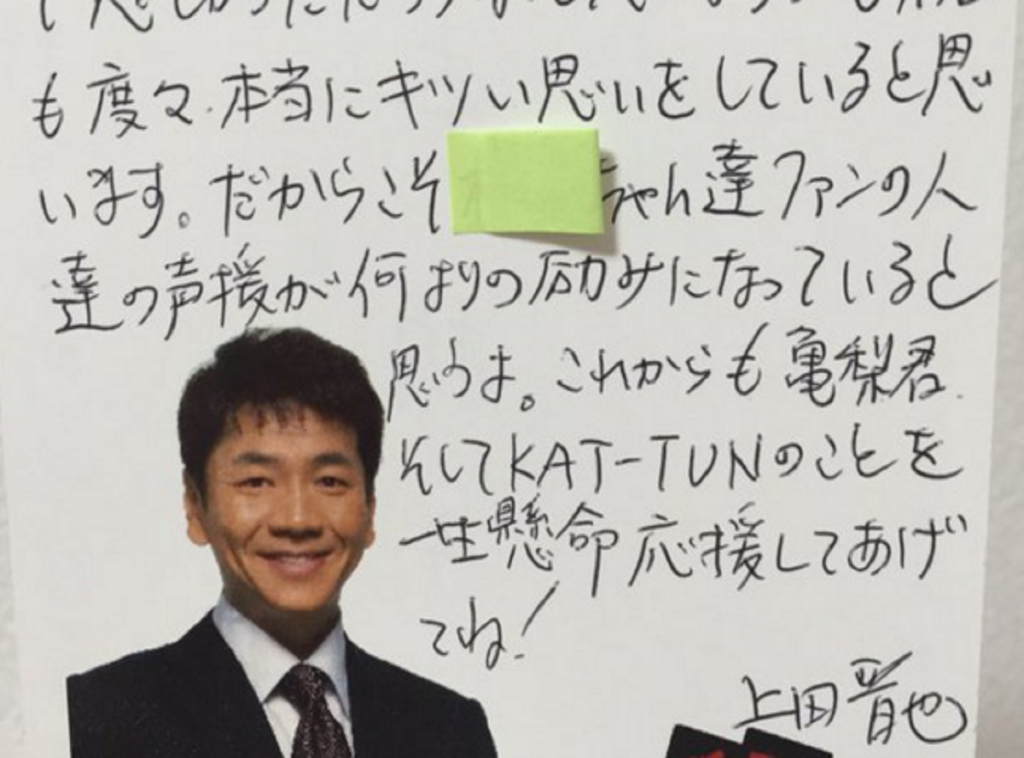 も度々、本当にキツい思いをしていると思
います。だからこそ ちゃん達ファンの人
達の声援が何よりの励みになっていると
思うよ。これからも亀梨君、
そしてKAT-TUNのことを
一生懸命応援してあげ
てね!
上田晋也